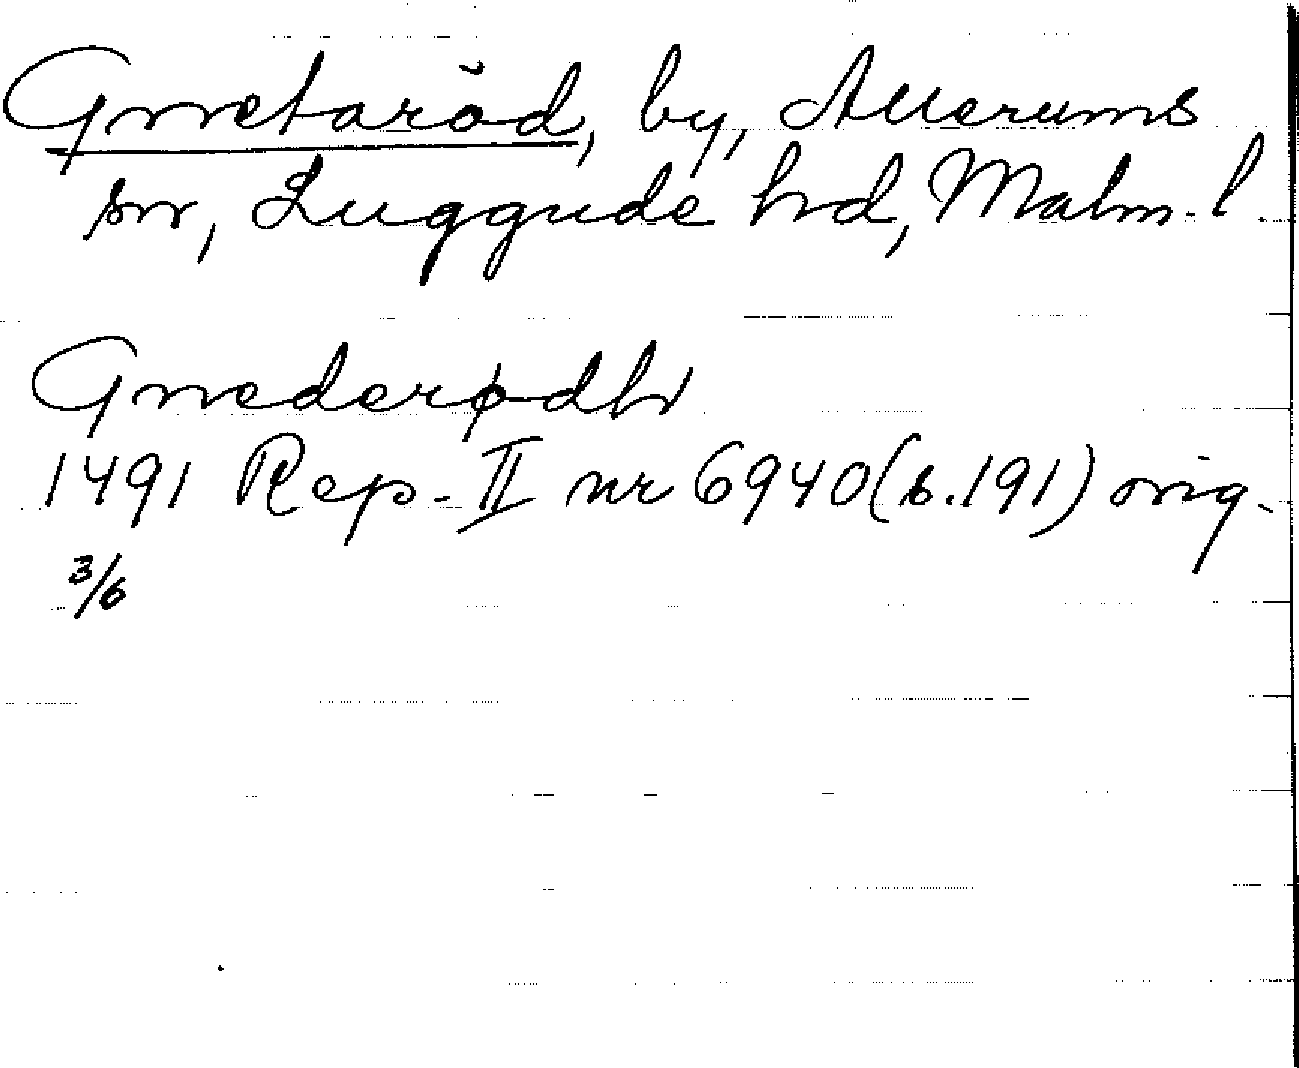 Gnetaröd, by, Allerums
sn, Luggude hd, Malm. l.
Gnederødh
1491 Rep. II nr 6940 (b. 191) orig.
3/6